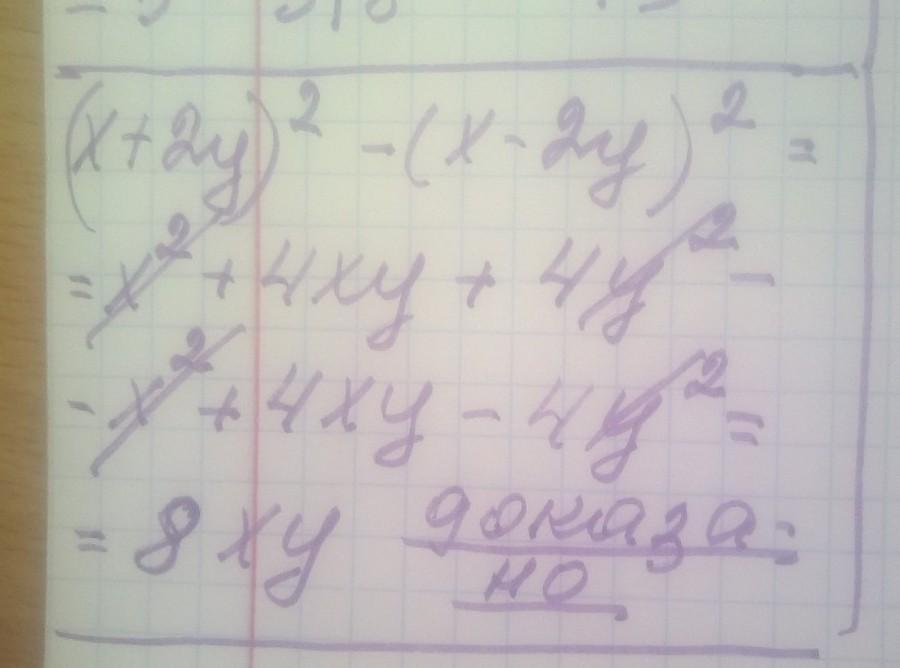 (x+2y)² -(x-2y)² =
= x² + 4xy + 4y² -
- x² + 4xy - 4y² =
= 8xy доказа-
но